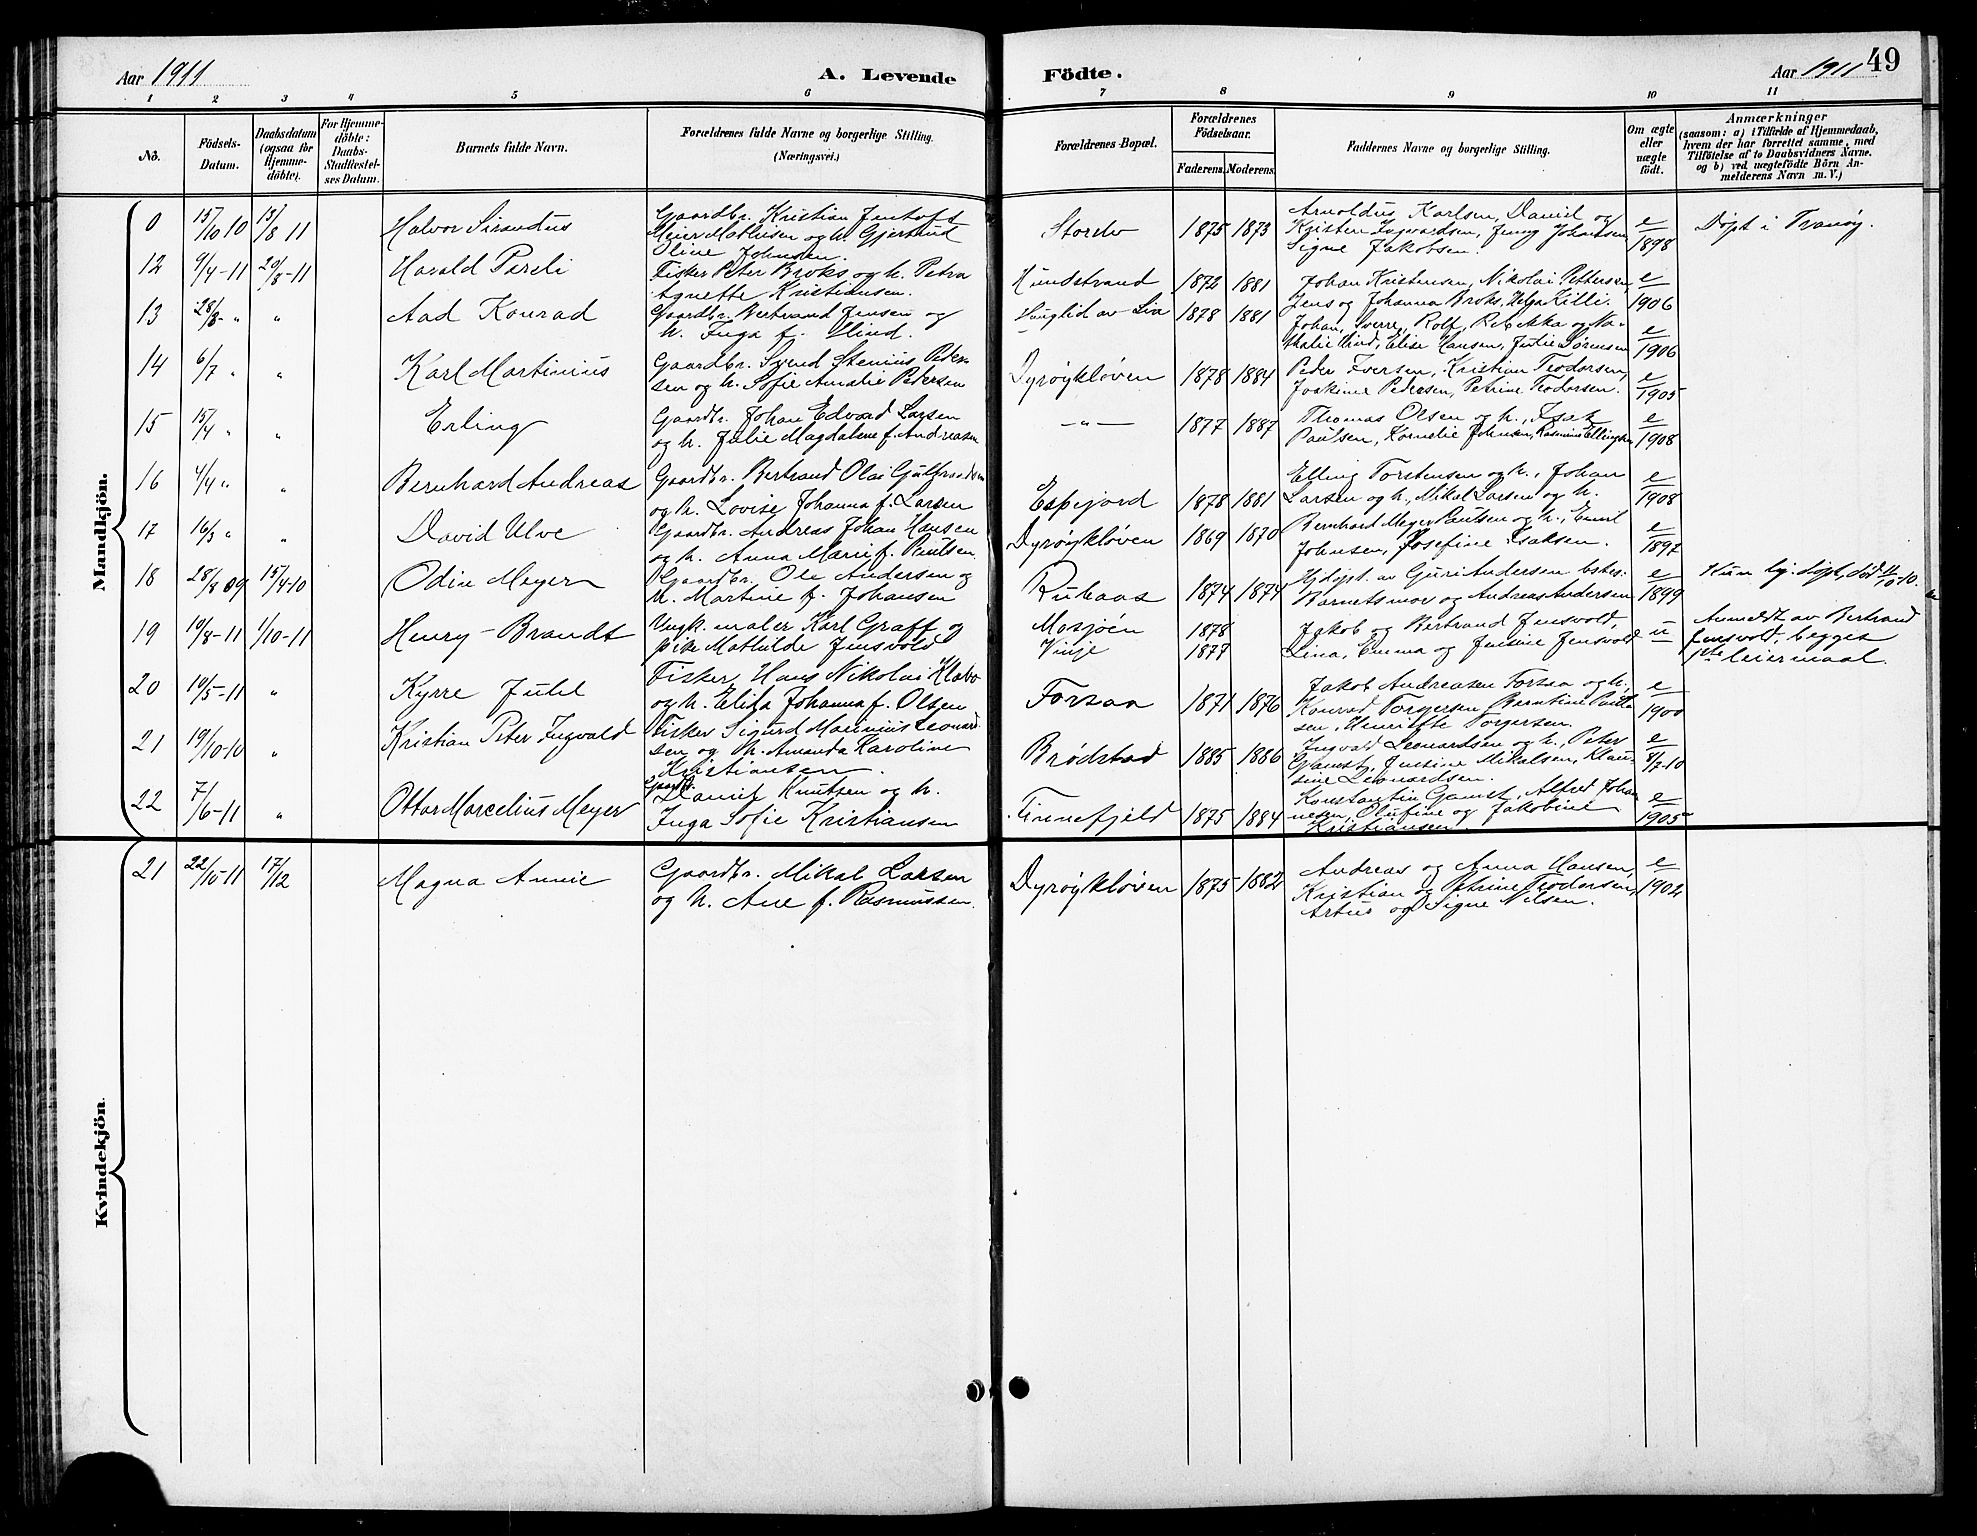 Aar 1911
A. Levende
Födte.
Aar 1911
49
1 2 3 4 5 6 7 8 9 10 11
No.
Födsels-Datum.
Daabsdatum (ogsaa for Hjemme-döbte).
For Hjemme-döbte: Daabs-Stadfæstel-ses Datum.
Barnets fulde Navn.
Forældrenes fulde Navne og borgerlige Stilling. (Næringsvei.)
Forældrenes Bopæl.
Forældrenes Födselsaar.
Faderens. Moderens.
Faddernes Navne og borgerlige Stilling.
Om ægte eller uægte födt.
Anmærkninger
(saasom: a) i Tilfælde af Hjemmedaab,
hvem der har forrettet samme, med
Tilföielse af to Daabsvidners Navne.
og b) ved uægtefödte Börn An-
melderens Navn m. V.)
Mandkjön.
0 15/10 10 13/8 11 Halvor Sirandus
Gaardbr. Kristian Jentoft
Meier Mathisen og h. Gjertrud
Oline Johnsen.
Storelv 1875 1873
Arnoldus Karlsen, Daniel og
Kristen Ingvardsen, Jenny Johansen,
Signe Jakobsen.
e/1898
Døpt i Tranøy.
12 9/4-11 20/8-11 Harald Pereli
Fisker Peter Broks og h. Petra
Agnette Kristiansen.
Hundstrand 1872 1881
Johan Kristensen, Nikolai Pettersen,
Jens og Johanna Broks, Helga Killi.
e/1906
13 28/3- " " Aad Konrad
Gaardbr. Bertrand Jensen og
h. Inga f. Hind.
1878 1881
Johan, Sverre, Rolf, Rebekka og Na-
thalie Hind, Elise Hansen, Julie Sørensen
e/1906
14 6/7 " " Karl Martinius
Gaardbr. Svend Stenius Peder-
sen og h. Sofie Amalie Petersen
Dyrøykløven 1878 1884
Peder Iversen, Kristian Teodorsen,
Joakime Pedersen, Petrine Teodorsen.
e/1905
15 15/4 " " Erling
Gaardbr. Johan Edvard Larsen
og h. Julie Magdalene f. Andreasen
— " — 1877 1887
Thomas Olsen og h., Isak
Paulsen, Kornelie Johnsen, Rasmus Ellingsen
e/1908
16 4/4 " " Bernhard Andreas
Gaardbr. Bertrand Olai Gulbrandsen
og h. Lovise Johanna f. Larsen
Espejord 1878 1881
Elling Torstensen og h., Johan
Larsen og h., Mikal Larsen og h.
e/1908
17 16/3 " " David Ulve
Gaardbr. Andreas Johan Hansen
og h. Anna Marie f. Paulsen
Dyrøykløven 1869 1870
Bernhard Meyer Paulsen og h., Emil
Johnsen, Josefine Isaksen.
e/1897
18 28/8 09 15/4-10 Odin Meyer
Gaardbr. Ole Andersen og
h. Martine f. Johansen
Rubaas 1874 1874
Hjdøpt. av Guri Andersen bster:
Barnets mor og Andreas Andersen
e/1899
Kun hj.døpt, død 12/10-10.
19 19/8-11 1/10-11 Henry-Brandt
Ungk. maler Karl Graff og
pike Mathilde Jensvold
Mosjøen 1878
Vinje 1877
Jakob og Bertrand Jensvold,
Lina, Emma og Jensine Jensvold
u
Anmeldt av Bertrand
Jensvold, begges
1ste leiermaal.
20 19/5-11 " Kyrre Juul
Fisker Hans Nikolai Klabo
og h. Elida Johanna f. Olsen
Forsaa 1871 1876
Jakob Andreasen Forsaa og h.
Konrad Torgersen Berntine Paul-
sen, Henriette Torgersen.
e/1900
21 19/10-10 " Kristian Peter Ingvald
Fisker Sigurd Marinius Leonard-
sen og h. Amanda Karoline
Kristiansen.
Brødstad 1885 1886
Ingvald Leonardsen og h., Peter
Gamst, Jensine Mikalsen, Klau-
sine Leonardsen.
e/8/7-10
22 7/6-11 " Ottar Marcelius Meyer
Gaardb. Daniel Knutsen og h.
Inga Sofie Kristiansen
Finnefjeld 1875 1884
Konstantin Gamst, Alfred Johan-
nesen, Olufine og Jakobine
Kristiansen.
e/1905
Kvindekjön.
21 22/10-11 17/12 Magna Annie
Gaardbr. Mikal Larsen
og h. Ane f. Rasmussen.
Dyrøykløven 1875 1882
Andreas og Anna Hansen,
Kristian og Petrine Teodorsen,
Artur og Signe Nilsen.
e/1902